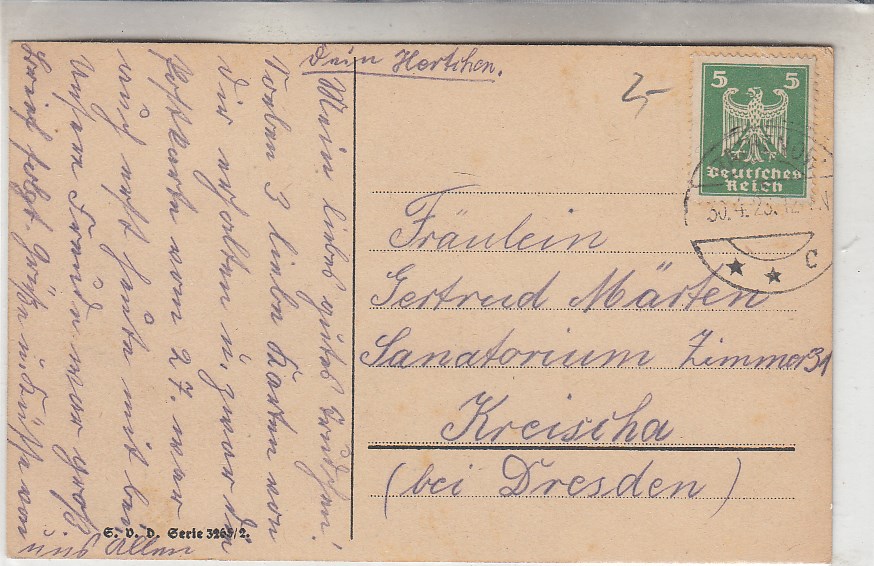 Mein liebes gutes Trudchen!
Soeben 3 liebe Karten von
dir erhalten u. zwar die
Postkarte vom 27. war
auch erst heute mit bei
Unsere Freude war groß
Brief folgt. Grüße u. Küsse von
uns Allen
Dein Hertchen.
2,-
5 5
Deutsches
Reich
30.4.25.
C
Fräulein
Gertrud Märten
Sanatorium Zimmer 31
Kreischa
(bei Dresden)
S. V. D. Serie 3265/2.